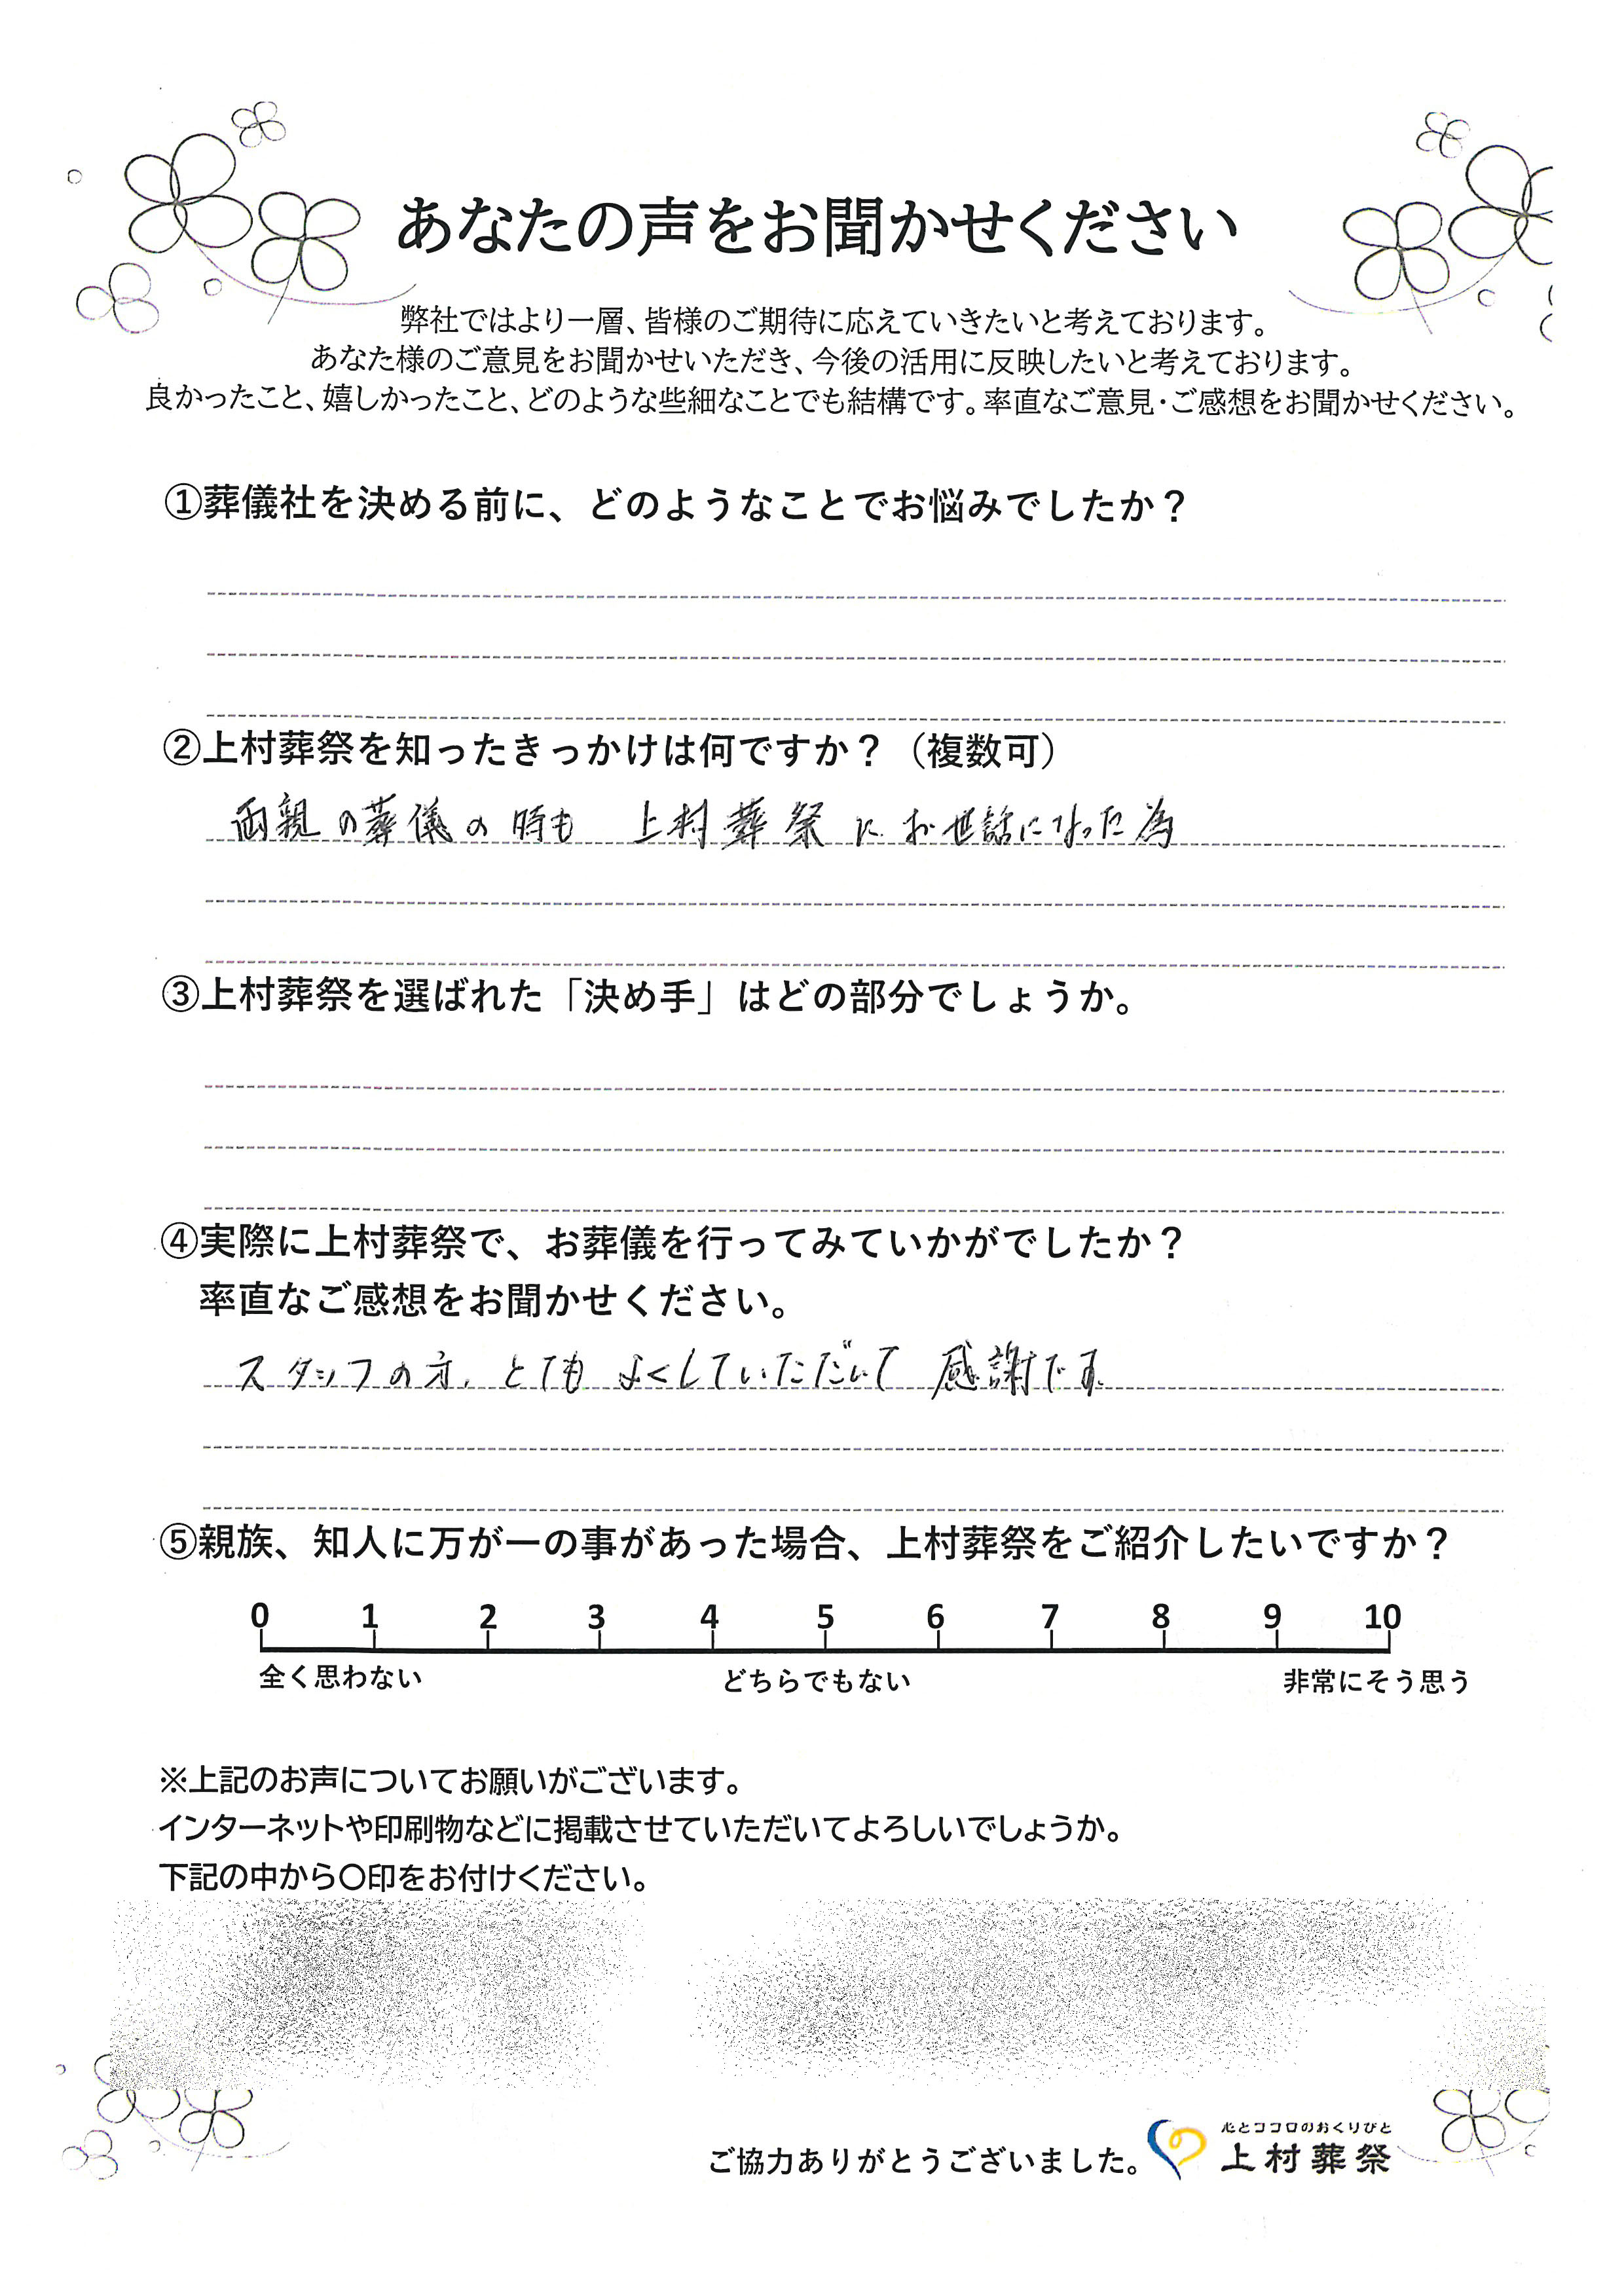 あなたの声をお聞かせください
弊社ではより一層、皆様のご期待に応えていきたいと考えております。
あなた様のご意見をお聞かせいただき、今後の活用に反映したいと考えております。
良かったこと、嬉しかったこと、どのような些細なことでも結構です。率直なご意見・ご感想をお聞かせください。
①葬儀社を決める前に、どのようなことでお悩みでしたか？
②上村葬祭を知ったきっかけは何ですか？（複数可）
両親の葬儀の時も 上村葬祭にお世話になった為
③上村葬祭を選ばれた「決め手」はどの部分でしょうか。
④実際に上村葬祭で、お葬儀を行ってみていかがでしたか？
率直なご感想をお聞かせください。
スタッフの方、とてもよくしていただいて 感謝です。
⑤親族、知人に万が一の事があった場合、上村葬祭をご紹介したいですか？
0 1 2 3 4 5 6 7 8 9 10
全く思わない どちらでもない 非常にそう思う
※上記のお声についてお願いがございます。
インターネットや印刷物などに掲載させていただいてよろしいでしょうか。
下記の中から〇印をお付けください。
心とココロのおくりびと
ご協力ありがとうございました。 上村葬祭